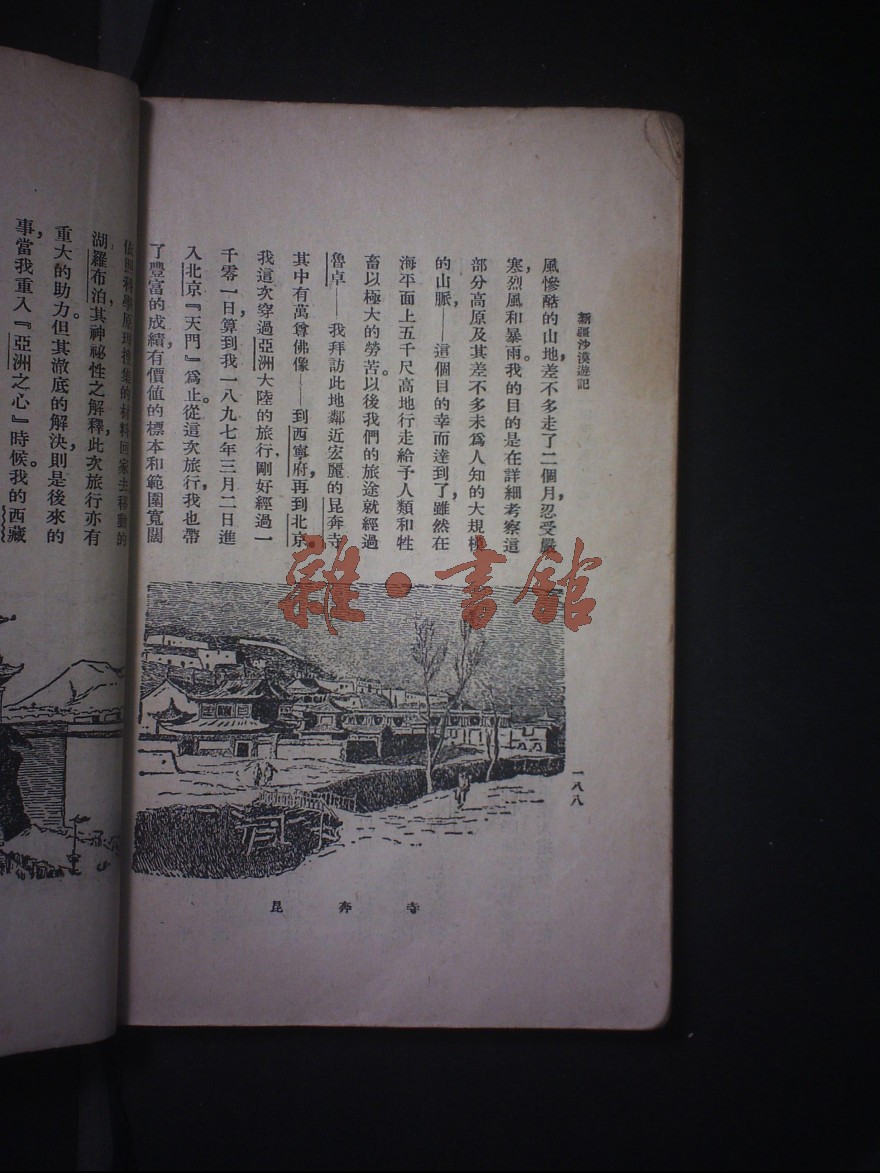 新疆沙漠遊記
風慘酷的山地，差不多走了二個月，忍受嚴
塞烈風和暴雨。我的目的是在詳細考察這
部分高原及其差不多未爲人知的大規模
的山脈——這個目的幸而達到了，雖然在
海平面上五千尺高地行走給予人類和牲
畜以極大的勞苦。以後我們的旅途就經過
魯卓——我拜訪此地鄰近宏麗的昆奔寺
其中有萬尊佛像——到西寧府，再到北京。
我這次穿過亞洲大陸的旅行，剛好經過一
千零一日，算到我一八九七年三月二日進
入北京『天門』爲止。從這次旅行，我也帶
了豐富的成績，有價值的標本和範圍寬闊
依照科學原理搜集的材料回家去移動的
湖，羅布泊，其神祕性之解釋，此次旅行亦有
重大的助力。但其澈底的解決則是後來的
事，當我重入『亞洲之心』時候。我的西藏
一八八
昆奔寺
雜·書館